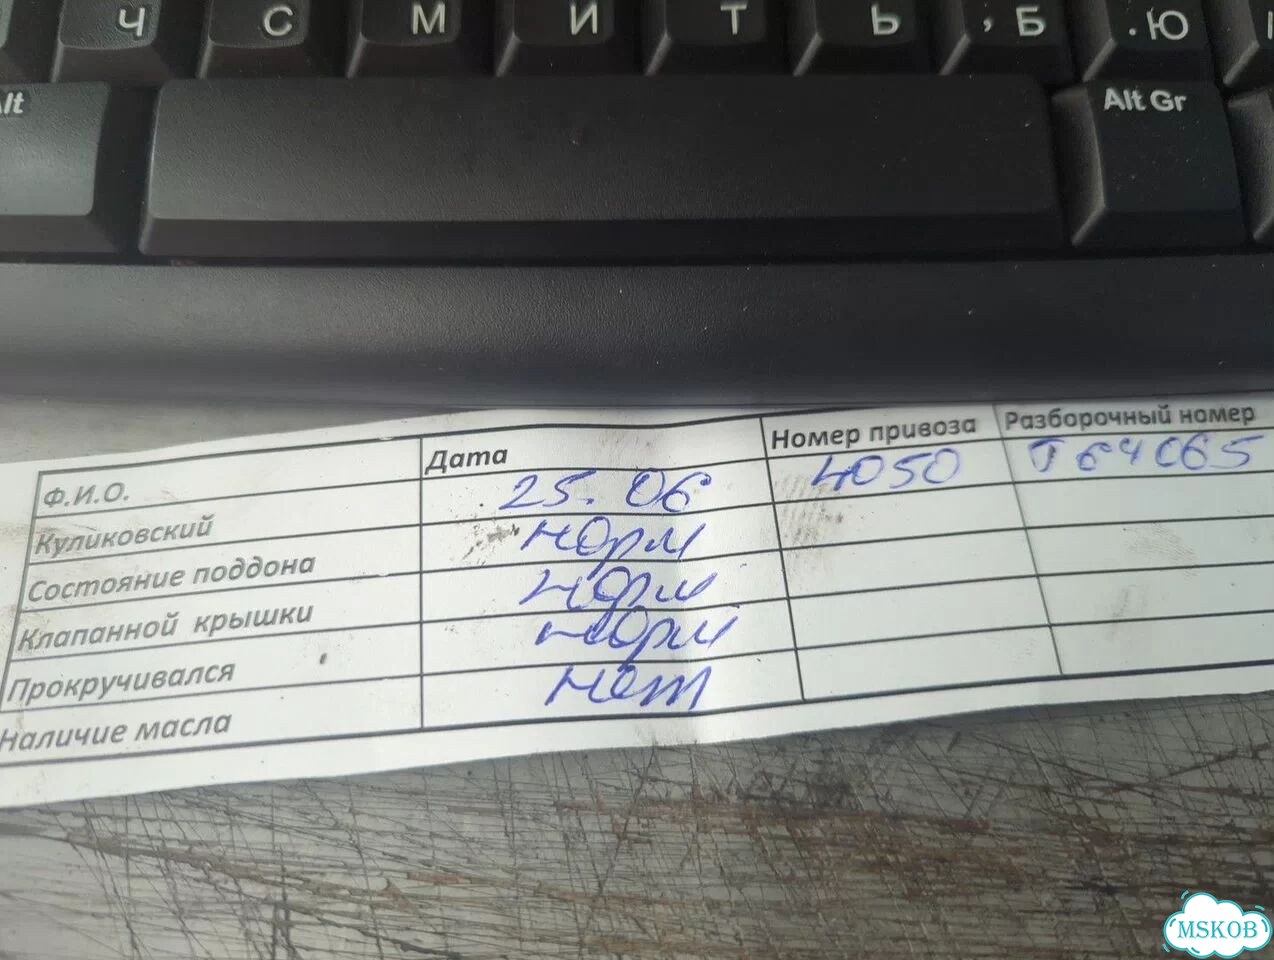 Ч С М И Т Ь , Б . Ю
Alt Alt Gr
Ф.И.О. Дата Номер привоза Разборочный номер
Куликовский 25.06 4050 T64065
Состояние поддона норм
Клапанной крышки норм
Прокручивался норм
Наличие масла нет
MSKOB